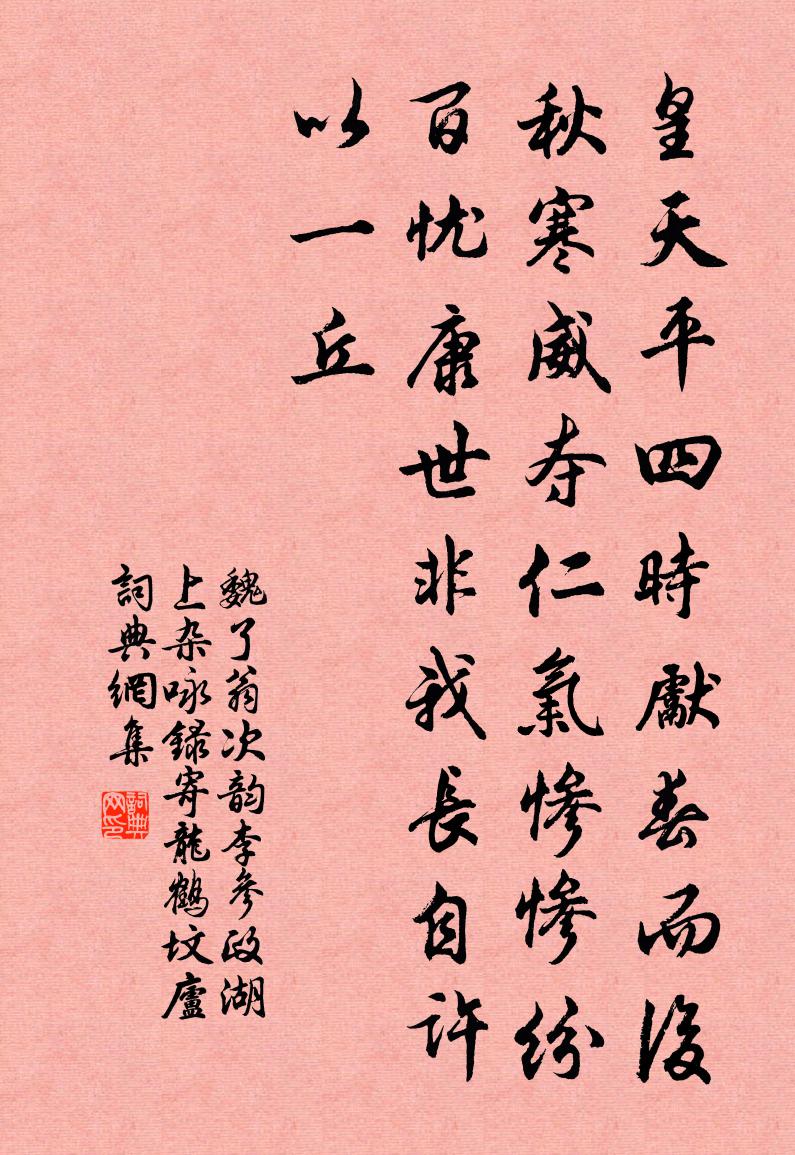 皇天平四時獻春而後
秋寒威夺仁氣慘慘紛
百忧康世非我長自许
以一丘
魏了翁次韵李參政湖
上杂咏録寄龍鶴坟廬
詞典網集
詞典网印